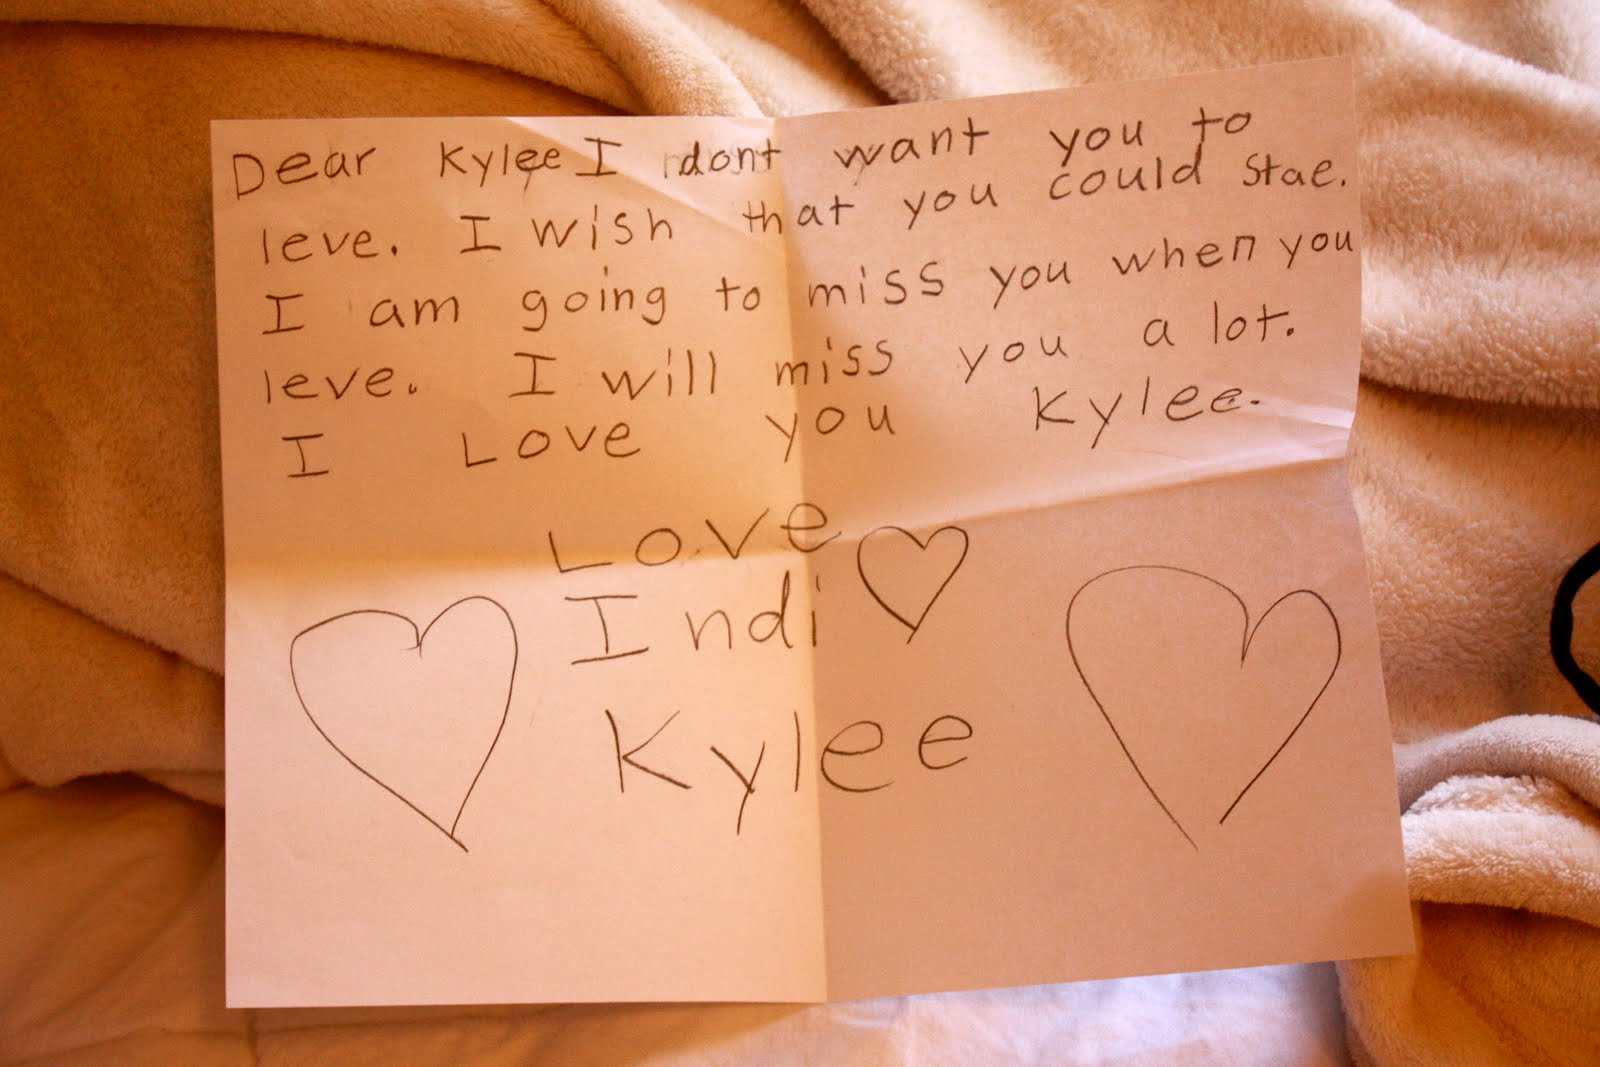 Dear Kylee I dont want you to
leve. I wish that you could stae.
I am going to miss you when you
leve. I will miss you a lot.
I Love you Kylee.
Love
Indi
Kylee